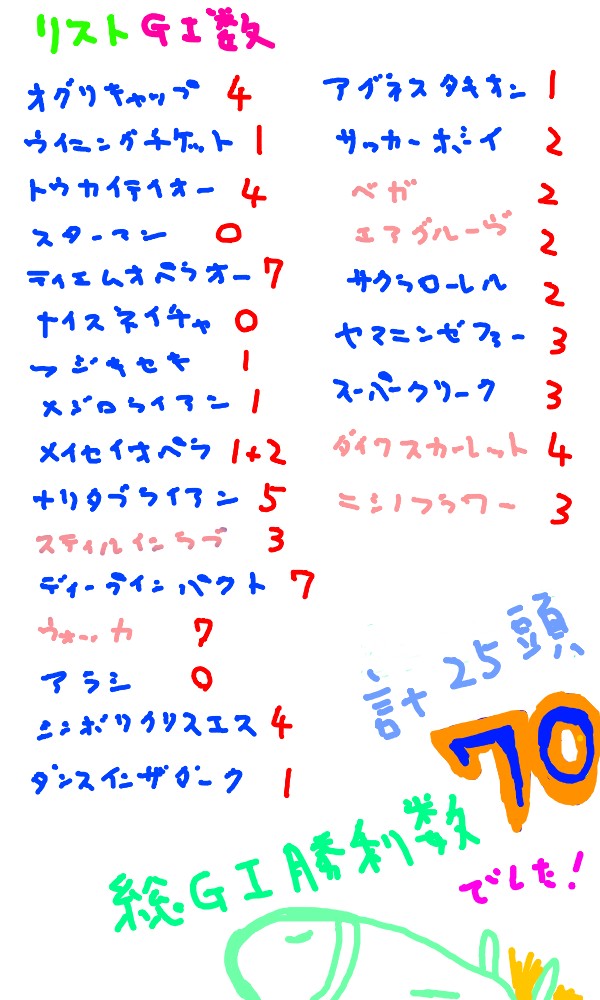 リスト GI数
オグリキャップ 4
ウイニングチケット 1
トウカイテイオー 4
スターマン 0
ティエムオペラオー 7
ナイスネイチャ 0
フジキセキ 1
メジロライアン 1
メイセイオペラ 1+2
ナリタブライアン 5
スティルインラブ 3
ディープインパクト 7
ウォッカ 7
アラシ 0
シンボリクリスエス 4
ダンスインザダーク 1
アグネスタキオン 1
サッカーボーイ 2
ベガ 2
エアグルーヴ 2
サクラローレル 2
ヤマニンゼファー 3
スーパークリーク 3
ダイワスカーレット 4
ニシノフラワー 3
計25頭
70
総GI勝利数
でした!